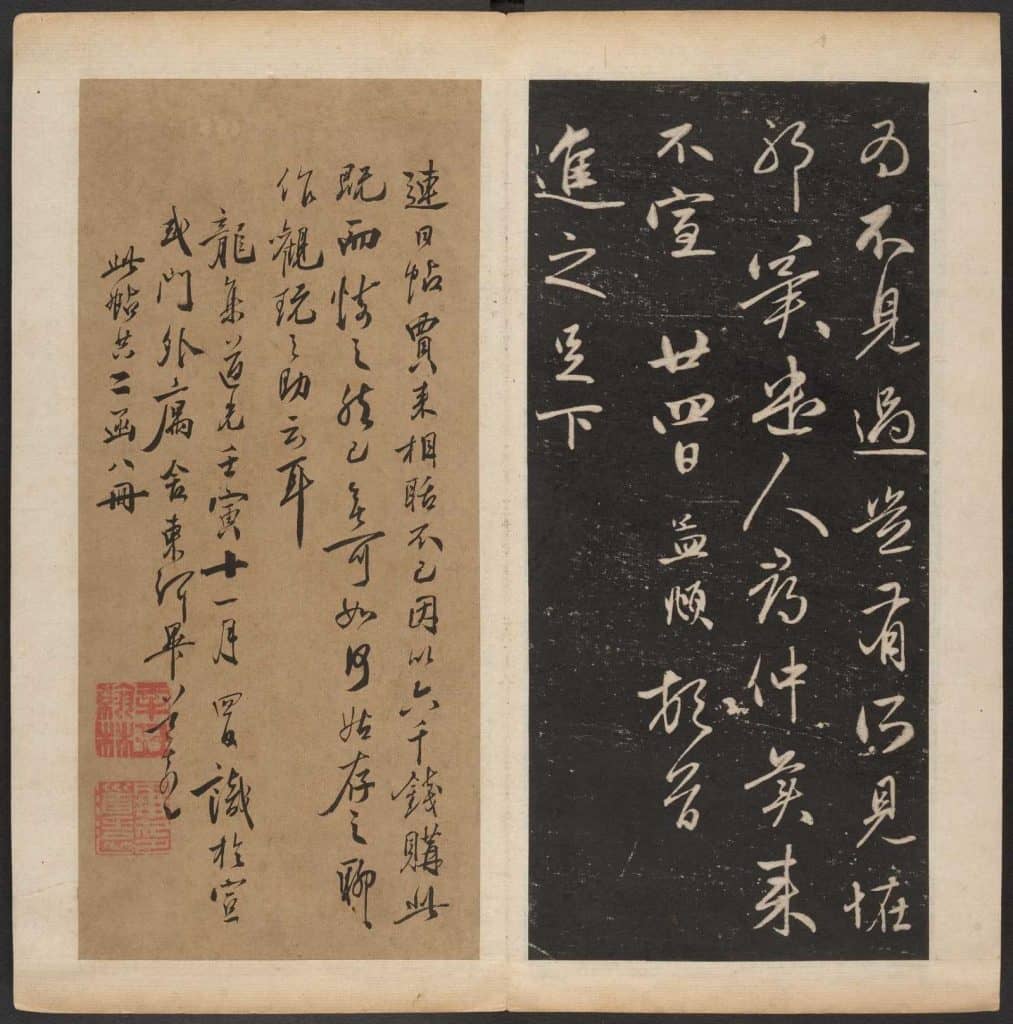 為不見過豈有何見怪
邪 奚出人為仲美來
不宣 廿四日 益頓
頓首
進之足下
連日帖賈來相聒不已因以六千錢購此
既而悔之然已無可如何姑存之聊
作觀玩之助云耳
龍集道光壬寅十一月四日識於宣
武門外寓舍東河畢
此帖共二函八冊